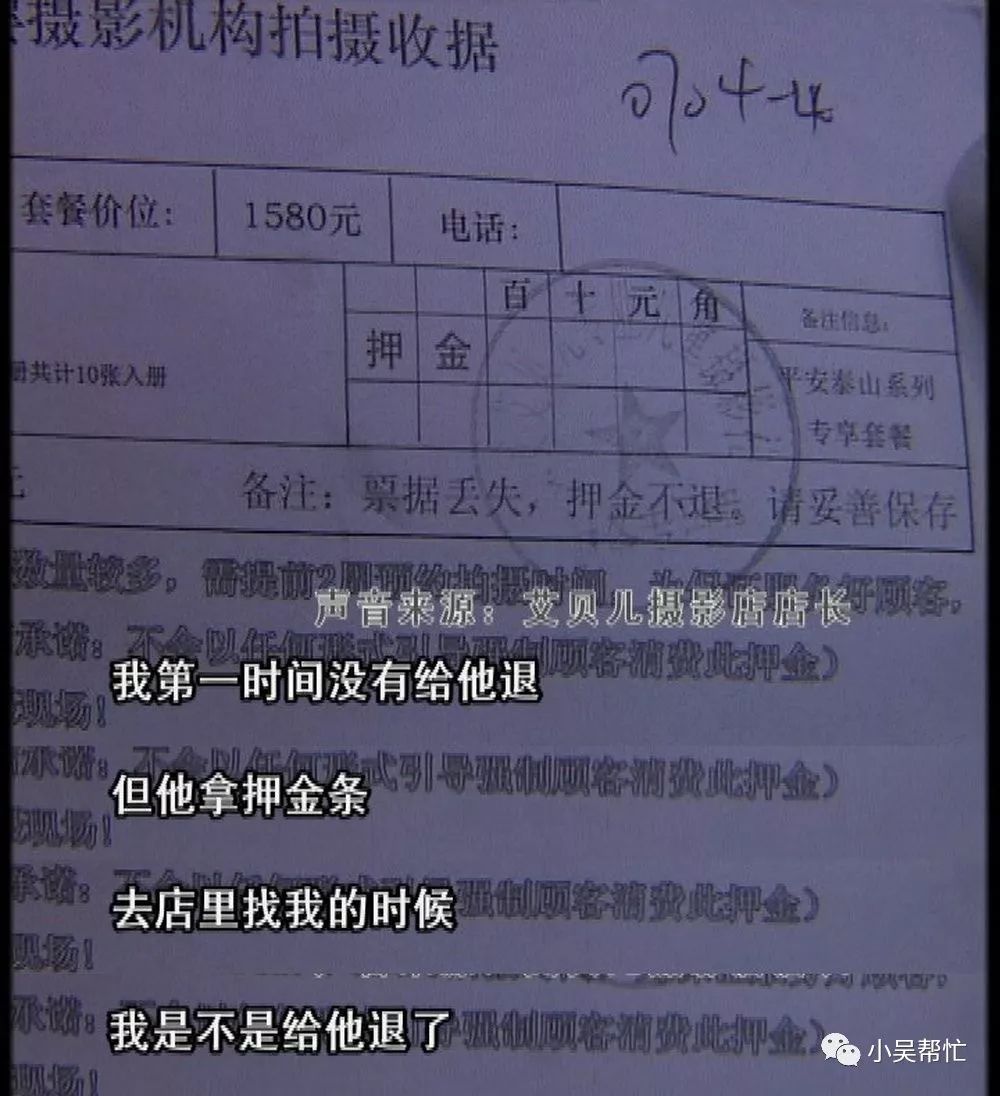 摄影机构拍摄收据
套餐价位: 1580元 电话:
百 十 元 角 备注信息:
押 金
册共计10张入册 平安泰山系列
专享套餐
备注: 票据丢失，押金不退。请妥善保存
数量较多，需提前2周预约拍摄时间，为保证服务好顾客，
声音来源：艾贝儿摄影店店长
承诺：不会以任何形式引导强制顾客消费此押金）
我第一时间没有给他退
现场！
承诺：不会以任何形式引导强制顾客消费此押金）
但他拿押金条
现场！
承诺： 强制顾客消费此押金）
去店里找我的时候
现场！
承诺： 强制顾客消费此押金）
我是不是给他退了
小吴帮忙
现场！